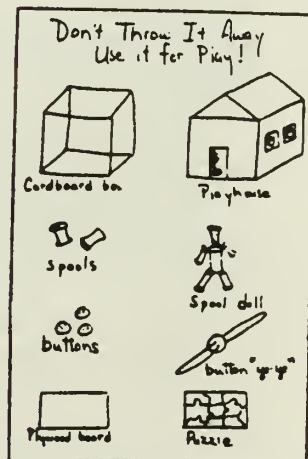 Don't Throw It Away
Use it for Play!
Cardboard box
Playhouse
Spools
Spool doll
buttons
button "yo-yo"
Plywood board
Puzzle